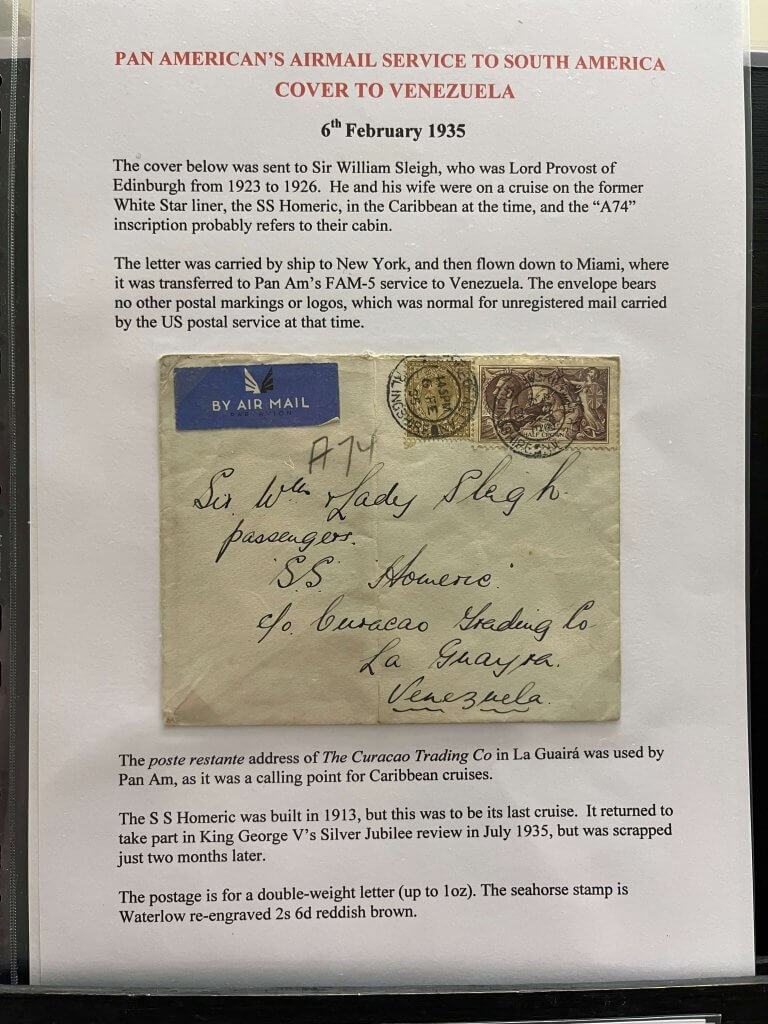 PAN AMERICAN'S AIRMAIL SERVICE TO SOUTH AMERICA
COVER TO VENEZUELA
6th February 1935
The cover below was sent to Sir William Sleigh, who was Lord Provost of
Edinburgh from 1923 to 1926. He and his wife were on a cruise on the former
White Star liner, the SS Homeric, in the Caribbean at the time, and the “A74”
inscription probably refers to their cabin.
The letter was carried by ship to New York, and then flown down to Miami, where
it was transferred to Pan Am's FAM-5 service to Venezuela. The envelope bears
no other postal markings or logos, which was normal for unregistered mail carried
by the US postal service at that time.
BY AIR MAIL
PAR AVION
6 FE
35
A74
Sir Wm & Lady Sleigh
passengers.
S.S. Homeric
c/o. Curacao Trading Co
La Guayra.
Venezuela.
The poste restante address of The Curacao Trading Co in La Guairá was used by
Pan Am, as it was a calling point for Caribbean cruises.
The S S Homeric was built in 1913, but this was to be its last cruise. It returned to
take part in King George V's Silver Jubilee review in July 1935, but was scrapped
just two months later.
The postage is for a double-weight letter (up to 1oz). The seahorse stamp is
Waterlow re-engraved 2s 6d reddish brown.